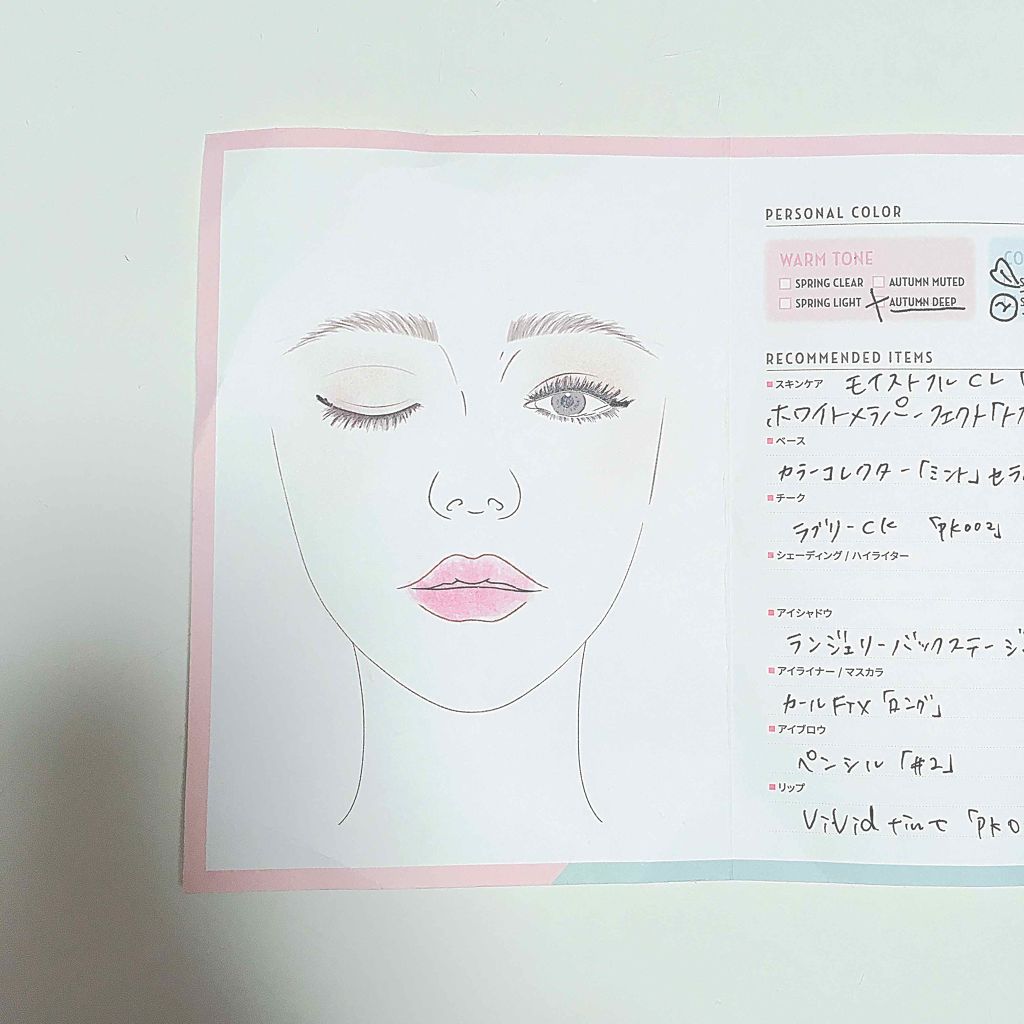 PERSONAL COLOR
WARM TONE
CO
SPRING CLEAR AUTUMN MUTED
SPRING LIGHT AUTUMN DEEP
②
RECOMMENDED ITEMS
スキンケア モイストフル CL「
ホワイトメラパーフェクト「ト
ベース
カラーコレクター「ミント」セラ
チーク
ラブリーCK 「PK002」
シェーディング / ハイライター
アイシャドウ
ランジェリーバックステージ
アイライナー / マスカラ
カールFIX「ロング」
アイブロウ
ペンシル「#2」
リップ
Vivid tint 「PK0